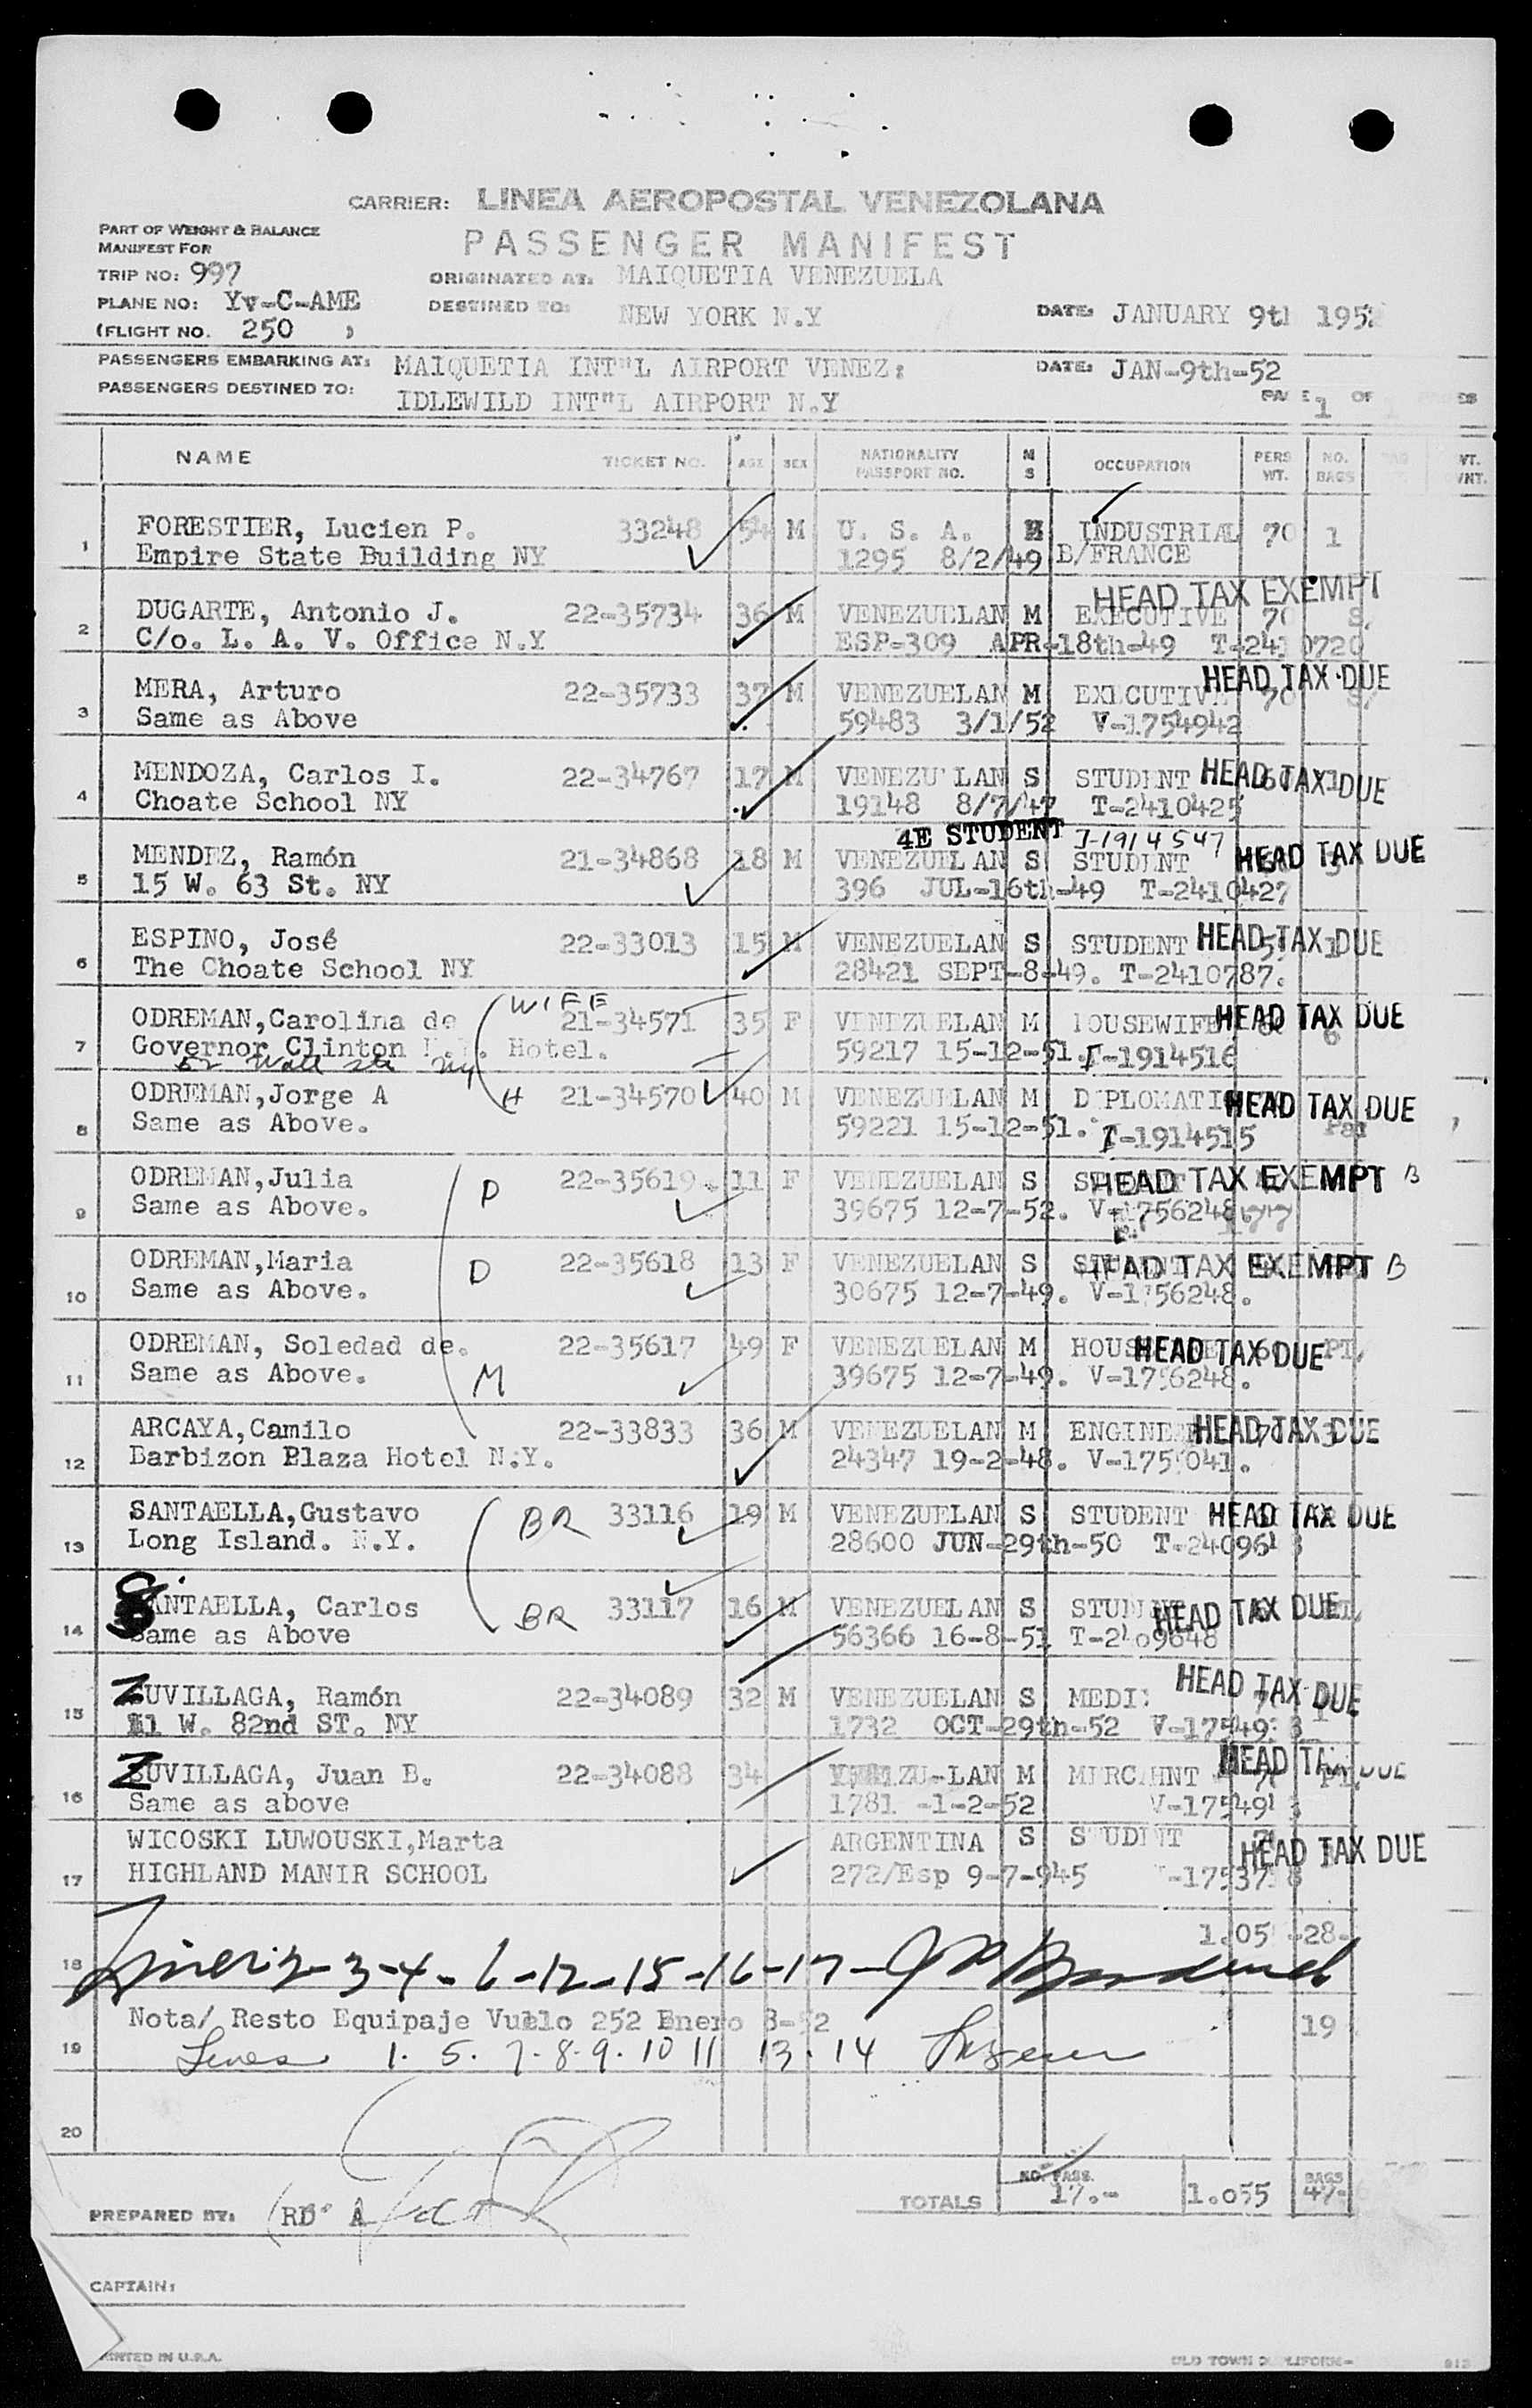 CARRIER: LINEA AEROPOSTAL VENEZOLANA
PART OF WEIGHT & BALANCE
MANIFEST FOR
PASSENGER MANIFEST
TRIP NO: 997
ORIGINATED AT: MAIQUETIA VENEZUELA
PLANE NO: YV-C-AME
DESTINED TO: NEW YORK N.Y
DATE: JANUARY 9th 195
(FLIGHT NO. 250 )
PASSENGERS EMBARKING AT: MAIQUETIA INT"L AIRPORT VENEZ:
DATE: JAN-9th-52
PASSENGERS DESTINED TO: IDLEWILD INT"L AIRPORT N.Y
PAGE 1 OF
NAME TICKET NO. AGE SEX NATIONALITY PASSPORT NO. M S OCCUPATION PERS WT. NO. BAGS
1 FORESTIER, Lucien P. 33248 54 M U. S. A. M INDUSTRIAL 70 1
Empire State Building NY 1295 8/2/49 B/FRANCE
HEAD TAX EXEMPT
2 DUGARTE, Antonio J. 22-35734 36 M VENEZUELAN M EXECUTIVE 70
C/o. L. A. V. Office N.Y ESP-309 APR-18th-49 T-2410720
HEAD TAX DUE
3 MERA, Arturo 22-35733 37 M VENEZUELAN M EXECUTIVE 70
Same as Above 59483 3/1/52 V-1754942
4 MENDOZA, Carlos I. 22-34767 17 M VENEZU LAN S STUDENT HEAD TAX DUE
Choate School NY 19148 8/7/47 T-2410425
4E STUDENT I-1914547
5 MENDEZ, Ramón 21-34868 18 M VENEZUELAN S STUDENT HEAD TAX DUE
15 W. 63 St. NY 396 JUL-16th-49 T-2410427
6 ESPINO, José 22-33013 15 M VENEZUELAN S STUDENT HEAD TAX DUE
The Choate School NY 28421 SEPT-8-49. T-2410787.
WIFE
7 ODREMAN,Carolina de 21-34571 35 F VENEZUELAN M HOUSEWIFE HEAD TAX DUE 6
Governor Clinton N.Y. Hotel. 59217 15-12-51. I-1914516
52 Wall St NY
8 ODREMAN,Jorge A H 21-34570 40 M VENEZUELAN M DIPLOMATI HEAD TAX DUE
Same as Above. 59221 15-12-51. I-1914515
9 ODREMAN,Julia D 22-35619 11 F VENEZUELAN S HEAD TAX EXEMPT B
Same as Above. 39675 12-7-52. V-1756248
10 ODREMAN,Maria D 22-35618 13 F VENEZUELAN S STUDENT HEAD TAX EXEMPT B
Same as Above. 30675 12-7-49. V-1756248.
11 ODREMAN, Soledad de. 22-35617 49 F VENEZUELAN M HOUS HEAD TAX DUE PT.
Same as Above. M 39675 12-7-49. V-1756248.
12 ARCAYA,Camilo 22-33833 36 M VENEZUELAN M ENGINEER HEAD TAX DUE
Barbizon Plaza Hotel N.Y. 24347 19-2-48. V-175 041.
13 SANTAELLA,Gustavo BR 33116 19 M VENEZUELAN S STUDENT HEAD TAX DUE
Long Island. N.Y. 28600 JUN-29th-50 T-240964
14 SANTAELLA, Carlos BR 33117 16 M VENEZUELAN S STUDENT HEAD TAX DUE
Same as Above 56366 16-8-51 T-2409648
15 ZUVILLAGA, Ramón 22-34089 32 M VENEZUELAN S MEDI HEAD TAX DUE
11 W. 82nd ST. NY 1732 OCT-29th-52 V-17549
16 ZUVILLAGA, Juan B. 22-34088 34 LAN M MERCAHNT HEAD TAX DUE
Same as above 1781 -1-2-52 V-17549
17 WICOSKI LUWOUSKI,Marta ARGENTINA S STUDENT HEAD TAX DUE
HIGHLAND MANIR SCHOOL 272/Esp 9-7-945
1.05 -28-
18 3-4-6-12-15-16-17-
19 Nota/ Resto Equipaje Vuelo 252 Enero 8-52 19
1. 5. 7. 8. 9. 10 11 13. 14
20
TOTALS NO. PASS. 17.- 1.055 BAGS 47-
PREPARED BY: RD A
CAPTAIN:
PRINTED IN U.S.A.
OLD TOWN